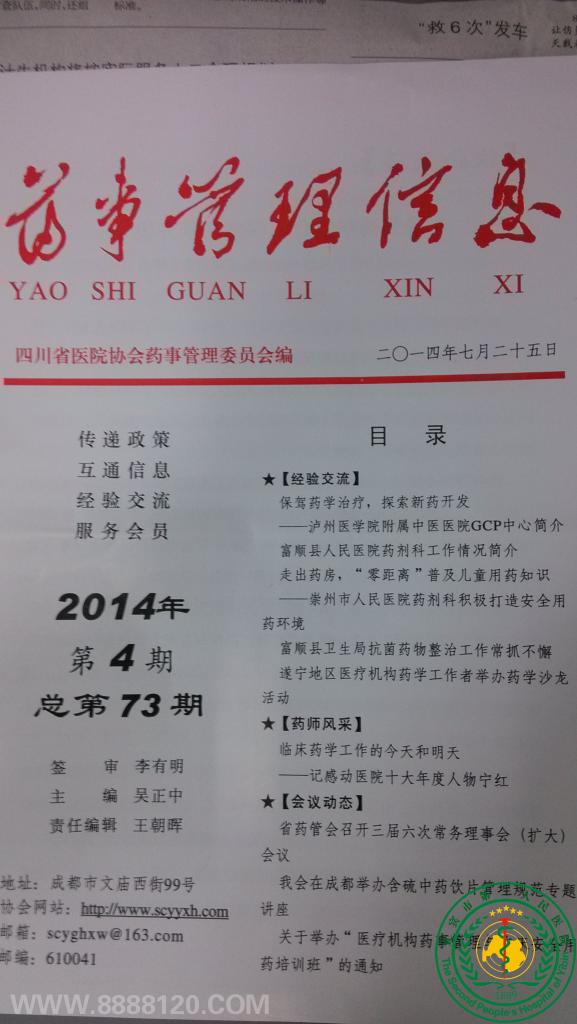 查队伍,同时,还组
标准。
"救6次"发车
让伤
天载
药事管理信息
YAO SHI GUAN LI XIN XI
四川省医院协会药事管理委员会编
二〇一四年七月二十五日
传递政策
互通信息
经验交流
服务会员
2014年
第4期
总第73期
签 审 李有明
主 编 吴正中
责任编辑 王朝晖
地址：成都市文庙西街99号
协会网站：http://www.scyyxh.com
邮箱：scyghxw@163.com
邮编：610041
目 录
★【经验交流】
保驾药学治疗，探索新药开发
——泸州医学院附属中医医院GCP中心简介
富顺县人民医院药剂科工作情况简介
走出药房，"零距离"普及儿童用药知识
——崇州市人民医院药剂科积极打造安全用
药环境
富顺县卫生局抗菌药物整治工作常抓不懈
遂宁地区医疗机构药学工作者举办药学沙龙
活动
★【药师风采】
临床药学工作的今天和明天
——记感动医院十大年度人物宁红
★【会议动态】
省药管会召开三届六次常务理事会（扩大）
会议
我会在成都举办含硫中药饮片管理规范专题
讲座
关于举办"医疗机构药事管理 安全用
药培训班"的通知
宜宾市第二人民医院
1889
The Second People's Hospital of Yibin
WWW.8888120.COM